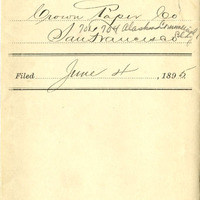 Crown Paper Co
702 & 704 Alaska Commercial Bld
San Francisco
Filed June 4, 1895